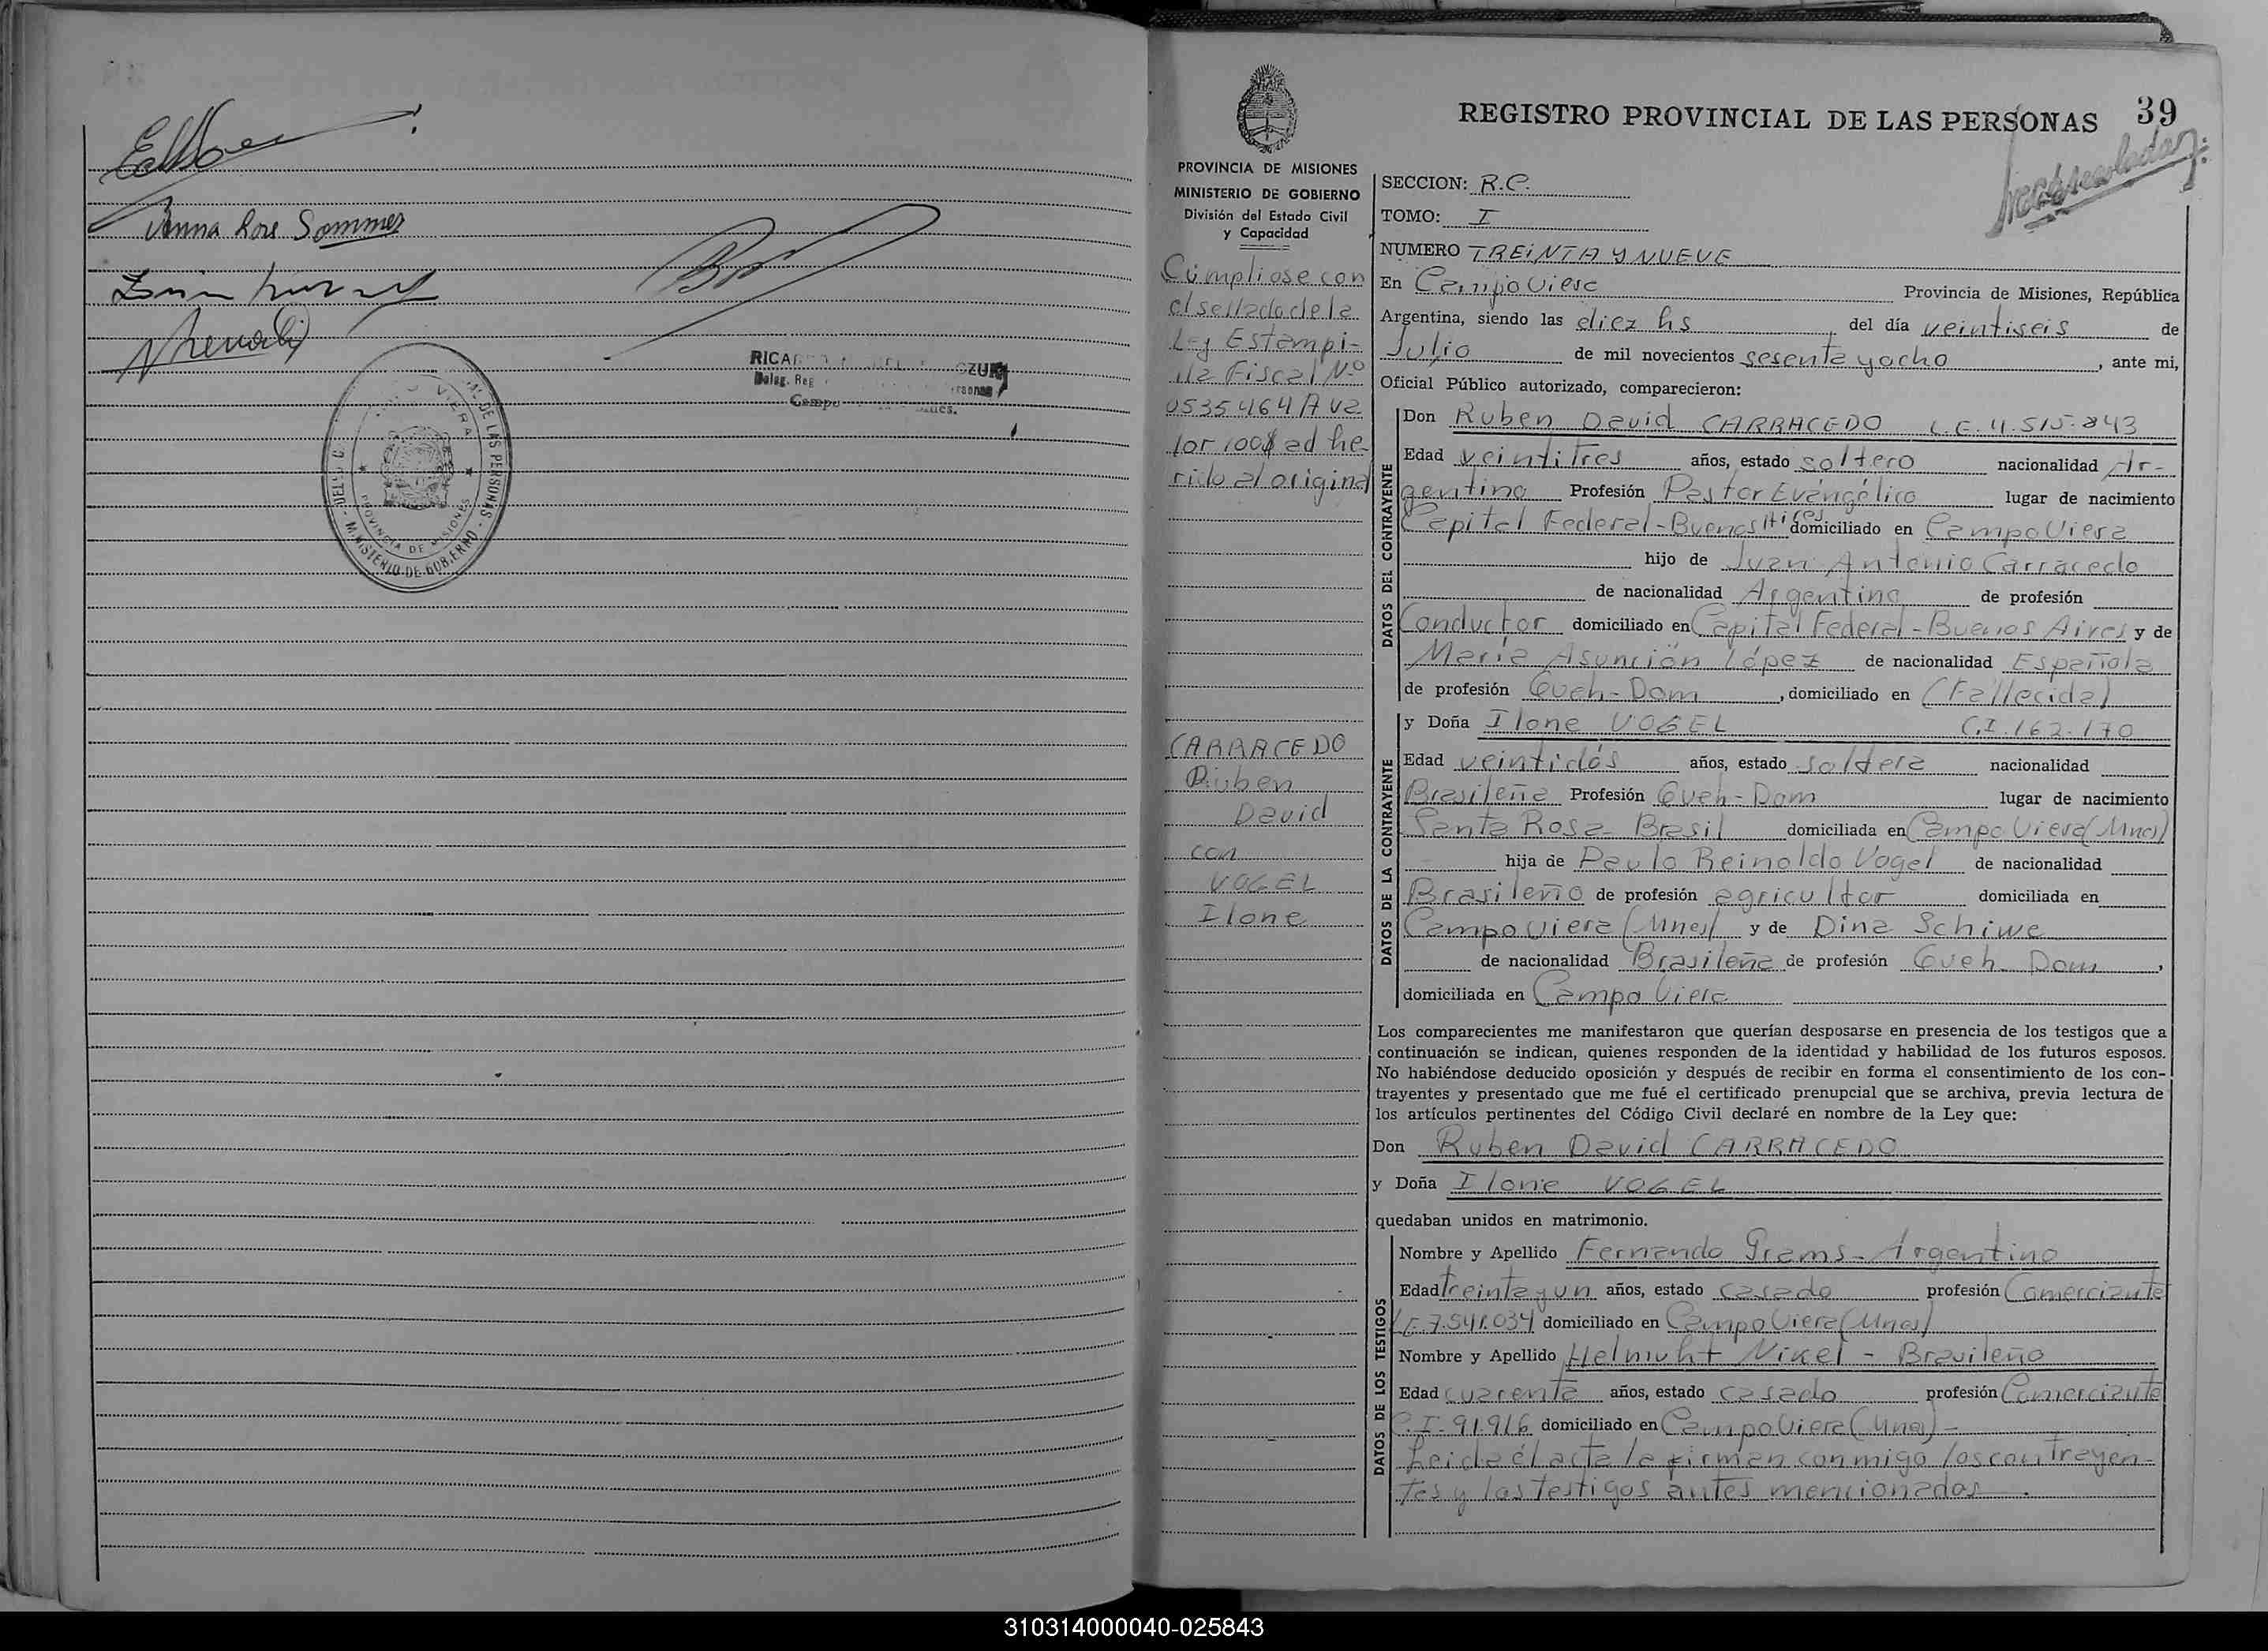 Anna Rose Sommer
RICA
Deleg. Reg
Campo
VIERA
DE LAS PERSONAS
PROVINCIA DE MISIONES
MINISTERIO DE GOBIERNO
39
REGISTRO PROVINCIAL DE LAS PERSONAS
PROVINCIA DE MISIONES
MINISTERIO DE GOBIERNO
División del Estado Civil
y Capacidad
Cúmpliose con
el sellado de la
Ley Estampi-
lla Fiscal Nº
0535464 A va
lor 100$ ad he-
rido al original
CARRACEDO
Ruben
David
con
VOGEL
Ilone
SECCION: R.C.
TOMO: I
NUMERO TREINTA Y NUEVE
En Campo Viera Provincia de Misiones, República
Argentina, siendo las diez hs del día veintiseis de
Julio de mil novecientos sesenta y ocho, ante mi,
Oficial Público autorizado, comparecieron:
DATOS DEL CONTRAYENTE
Don Ruben David CARRACEDO L.E. 4.515.843
Edad veintitres años, estado soltero nacionalidad Ar-
gentino Profesión Pastor Evángélico lugar de nacimiento
Capital Federal-Buenos Aires domiciliado en Campo Viera
hijo de Juan Antonio Carracedo
de nacionalidad Argentino de profesión
Conductor domiciliado en Capital Federal-Buenos Aires y de
María Asunción López de nacionalidad Española
de profesión Queh-Dom, domiciliado en (Fallecida)
DATOS DE LA CONTRAYENTE
y Doña Ilone VOGEL C.I. 162.170
Edad veintidós años, estado soltera nacionalidad
Brasileña Profesión Queh-Dom lugar de nacimiento
Santa Rosa-Brasil domiciliada en Campo Viera (Mnes)
hija de Paulo Reinoldo Vogel de nacionalidad
Brasileño de profesión agricultor domiciliada en
Campo Viera (Mnes) y de Dina Schiwe
de nacionalidad Brasileña de profesión Queh-Dom,
domiciliada en Campo Viera
Los comparecientes me manifestaron que querían desposarse en presencia de los testigos que a
continuación se indican, quienes responden de la identidad y habilidad de los futuros esposos.
No habiéndose deducido oposición y después de recibir en forma el consentimiento de los con-
trayentes y presentado que me fué el certificado prenupcial que se archiva, previa lectura de
los artículos pertinentes del Código Civil declaré en nombre de la Ley que:
Don Ruben David CARRACEDO
y Doña Ilone VOGEL
quedaban unidos en matrimonio.
DATOS DE LOS TESTIGOS
Nombre y Apellido Fernando Grams-Argentino
Edad treinta y un años, estado casado profesión Comerciante
L.E. 7.541.034 domiciliado en Campo Viera (Mnes)
Nombre y Apellido Helmuht Nikel - Brasileño
Edad cuarenta años, estado casado profesión Comerciante
C.I. 91.916 domiciliado en Campo Viera (Mnes)-
Leida él acta la firman conmigo los contrayen-
tes y los testigos antes mencionados.
310314000040-025843